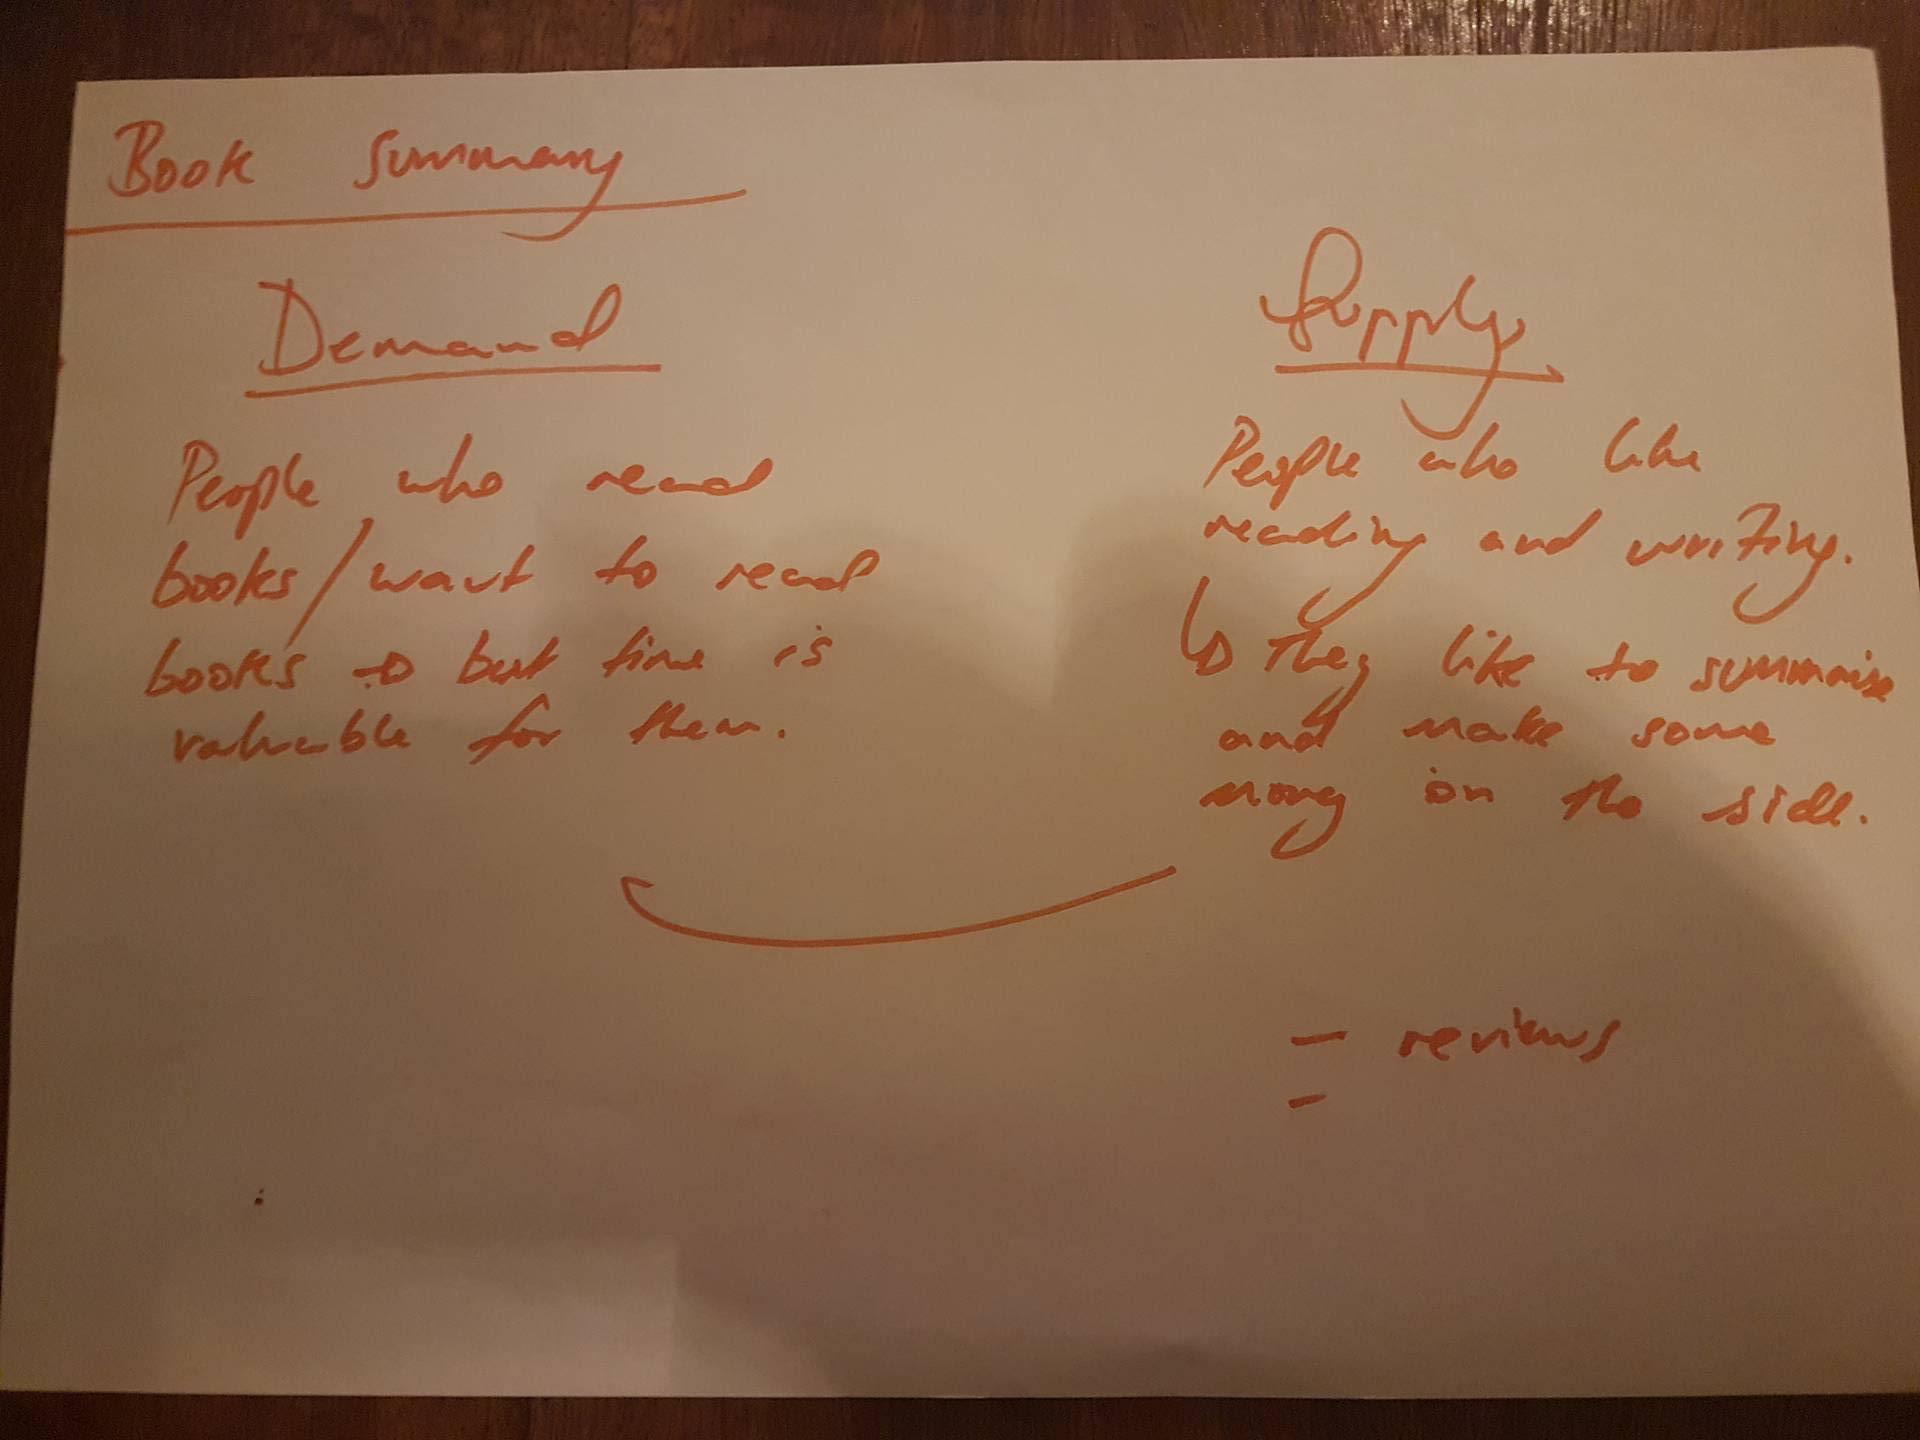 Book summary
Demand
People who read
books / want to read
books → but time is
valuable for them.
Supply
People who like
reading and writing.
↳ They like to summarise
and make some
money on the side.
- reviews
-